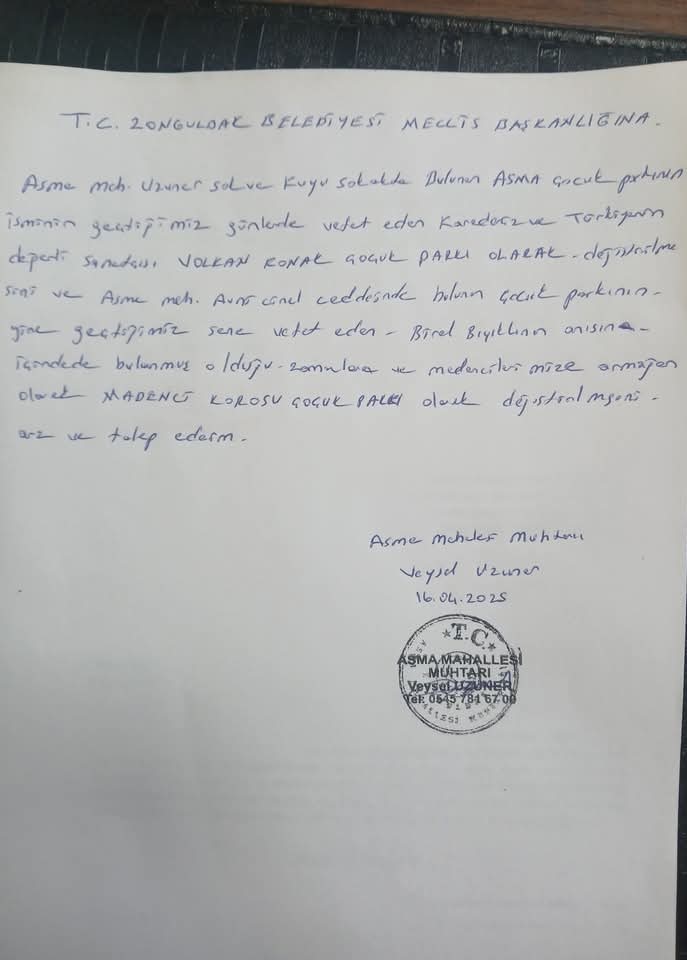 T.C. ZONGULDAK BELEDİYESİ MECLİS BAŞKANLIĞINA.
Asma mah. Uzuner sok ve Kuyu sokakda Bulunan ASMA çocuk parkının
isminin geçtiğimiz günlerde vefat eden Karadeniz ve Türkiyenin
değerli sanatçısı VOLKAN KONAK ÇOÇUK PARKI OLARAK - değiştirilme
sini ve Asma mah. Avni canel caddesinde bulunan çocuk parkının -
yine geçtiğimiz sene vefat eden - Birol Bıyıklının anısına -
içindede bulunmuş olduğu - ve madencilerimize armağan
olarak MADENCİ KOROSU ÇOÇUK PARKI olarak değiştirilmesini -
arz ve talep ederim.
Asma Mahallesi Muhtarı
Veysel Uzuner
16.04.2025
★ T.C. ★
ASMA MAHALLESİ
MUHTARI
Veysel UZUNER
Tel: 0545 781 67 00